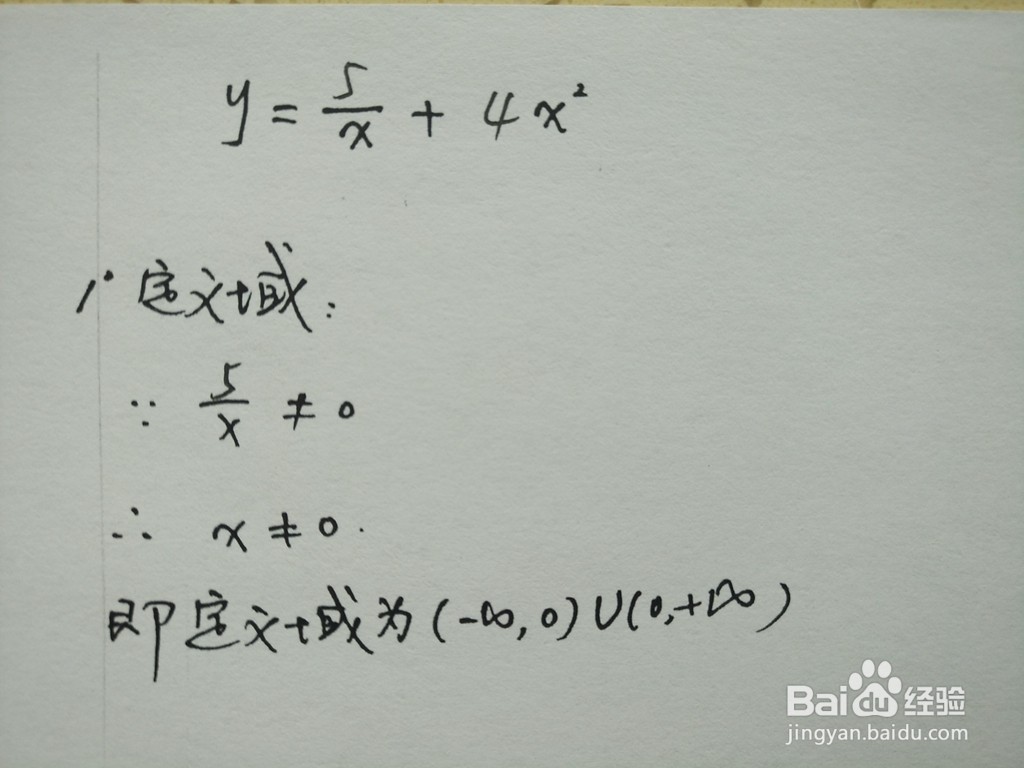 y = 5/x + 4x²
1° 定义域:
∵ 5/x ≠ 0
∴ x ≠ 0.
即定义域为(-∞,0)∪(0,+∞)
Bai du 经验
jingyan.baidu.com